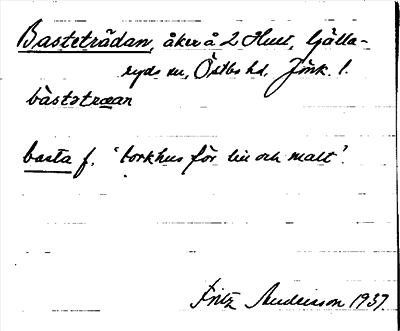 Basteträdan, åker å 2 Hult, Gjälla-
ryds sn, Östbo hd, Jönk. l.
bàststræar
basta f. 'torkhus för lin och malt'.
Fritz Andersson 1937.